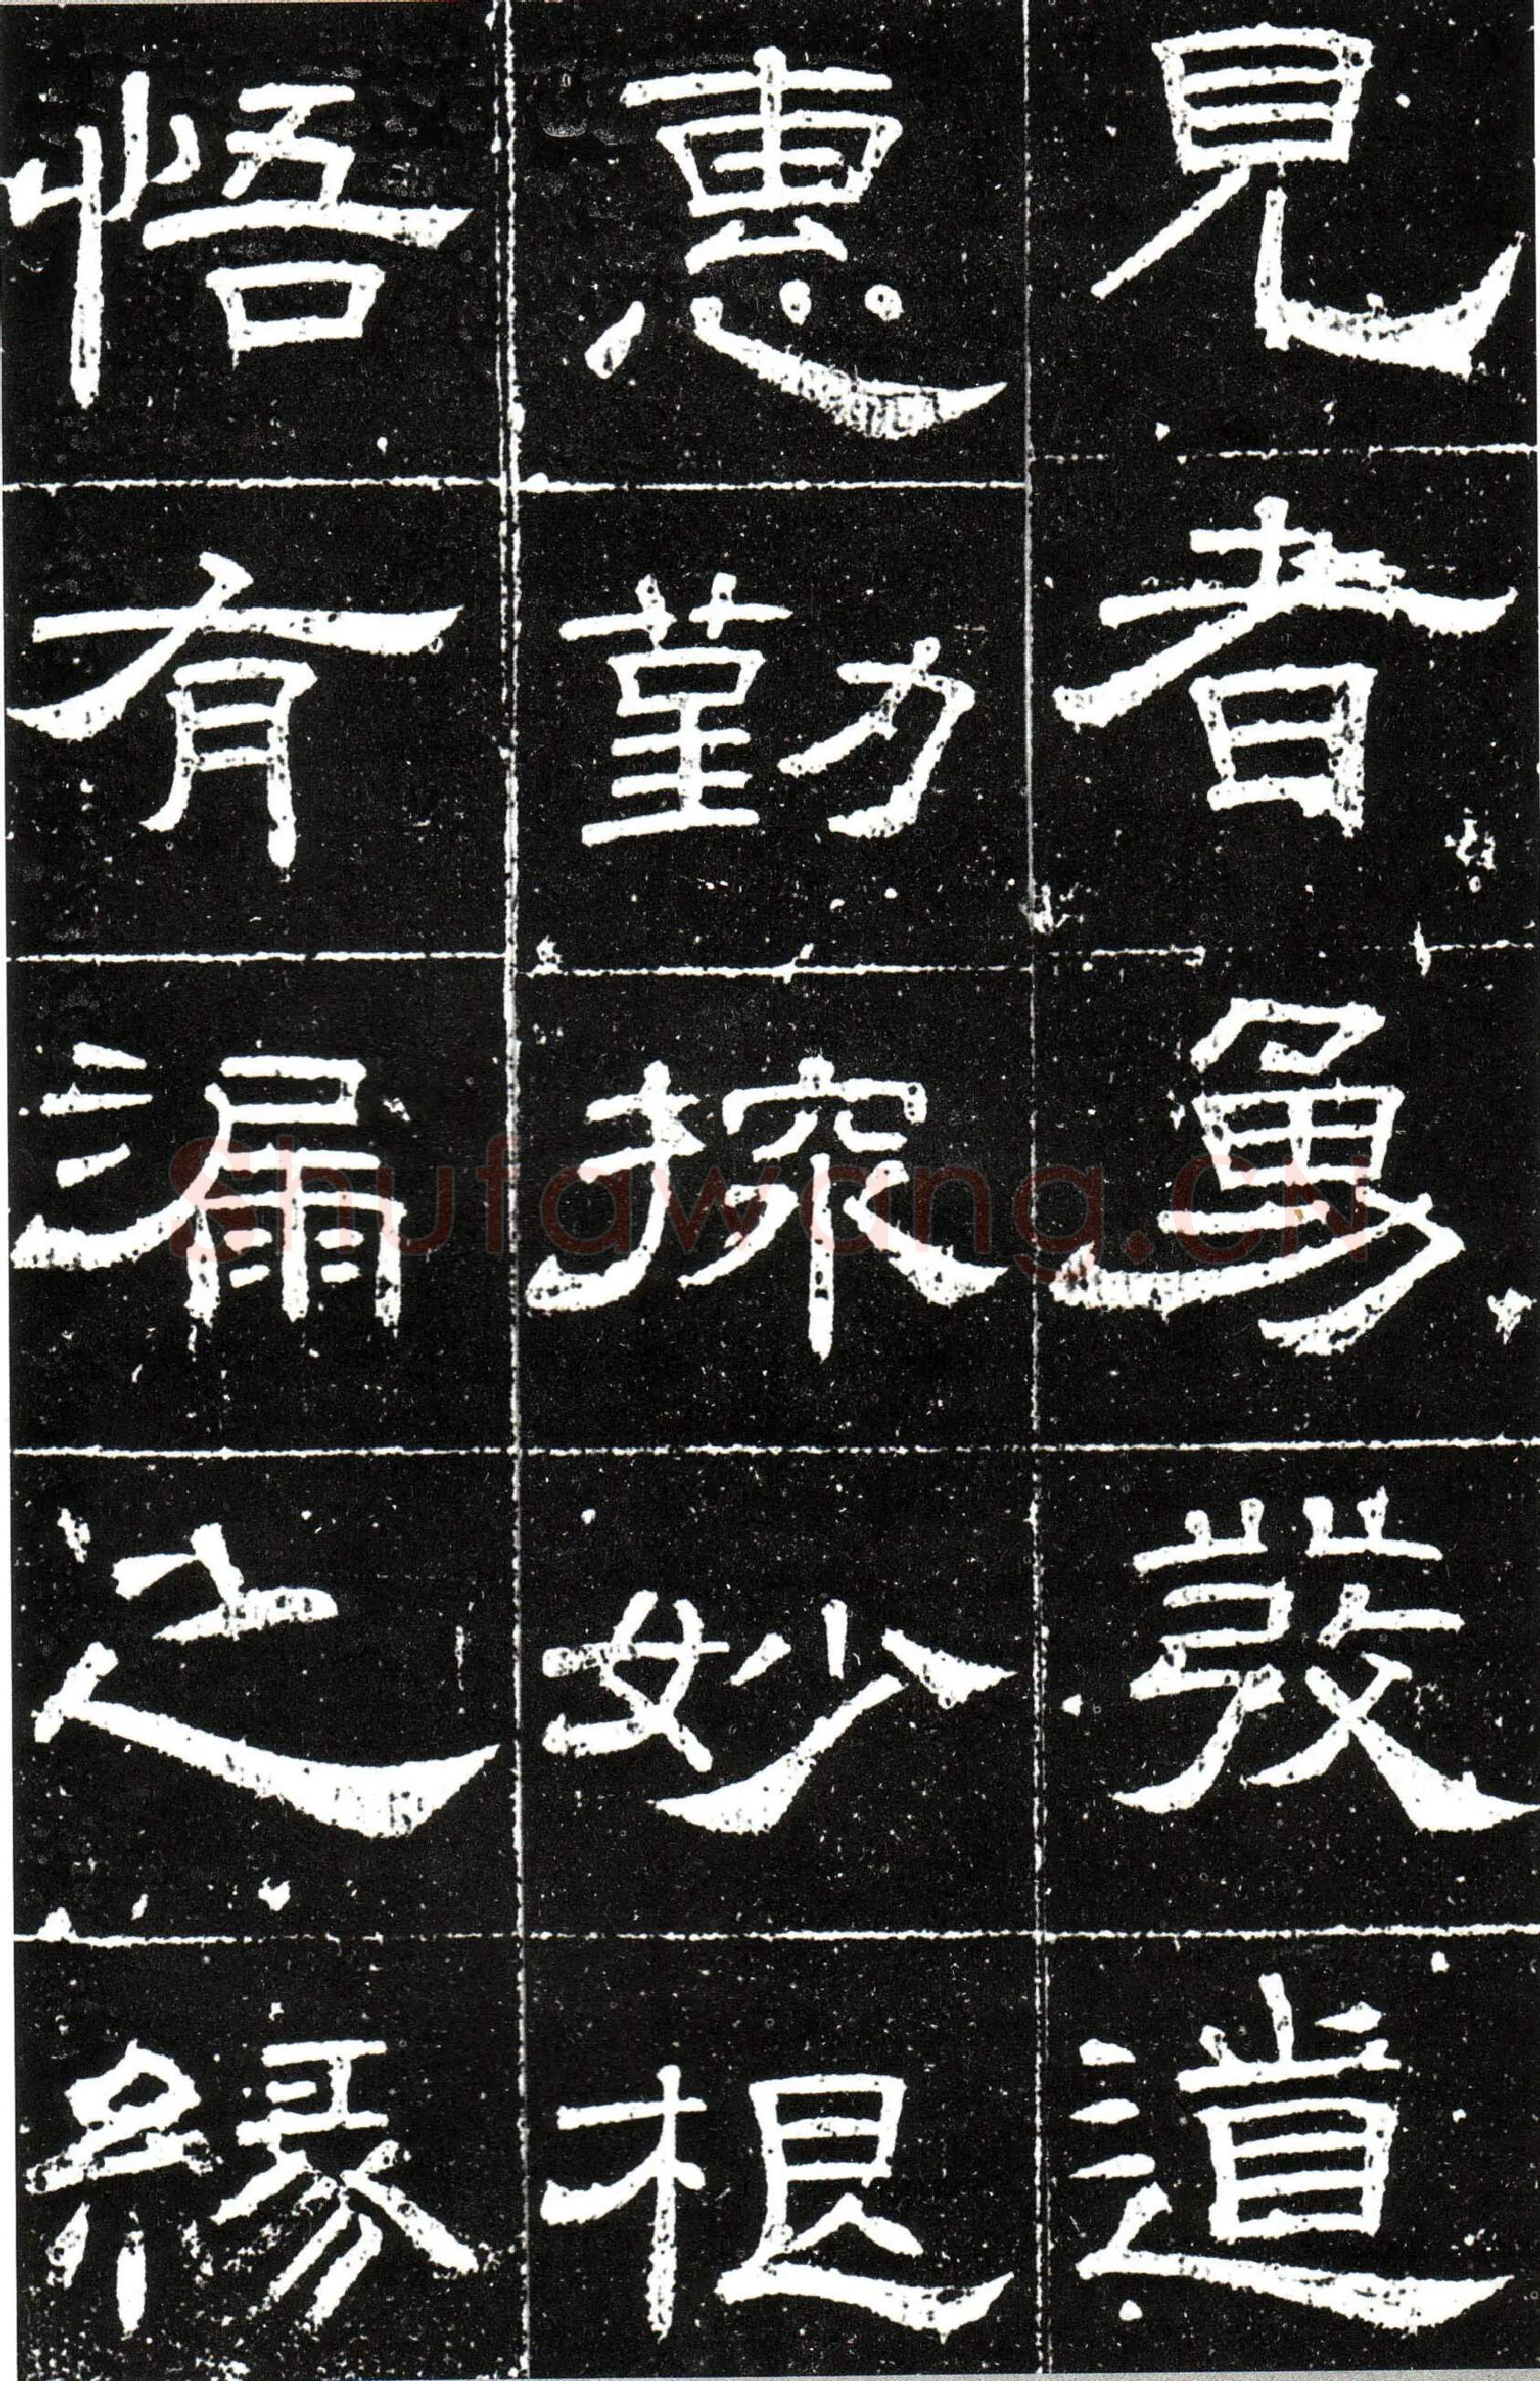 見者勇發道
惠勤探妙根
悟有漏之緣
Shufawang.CN